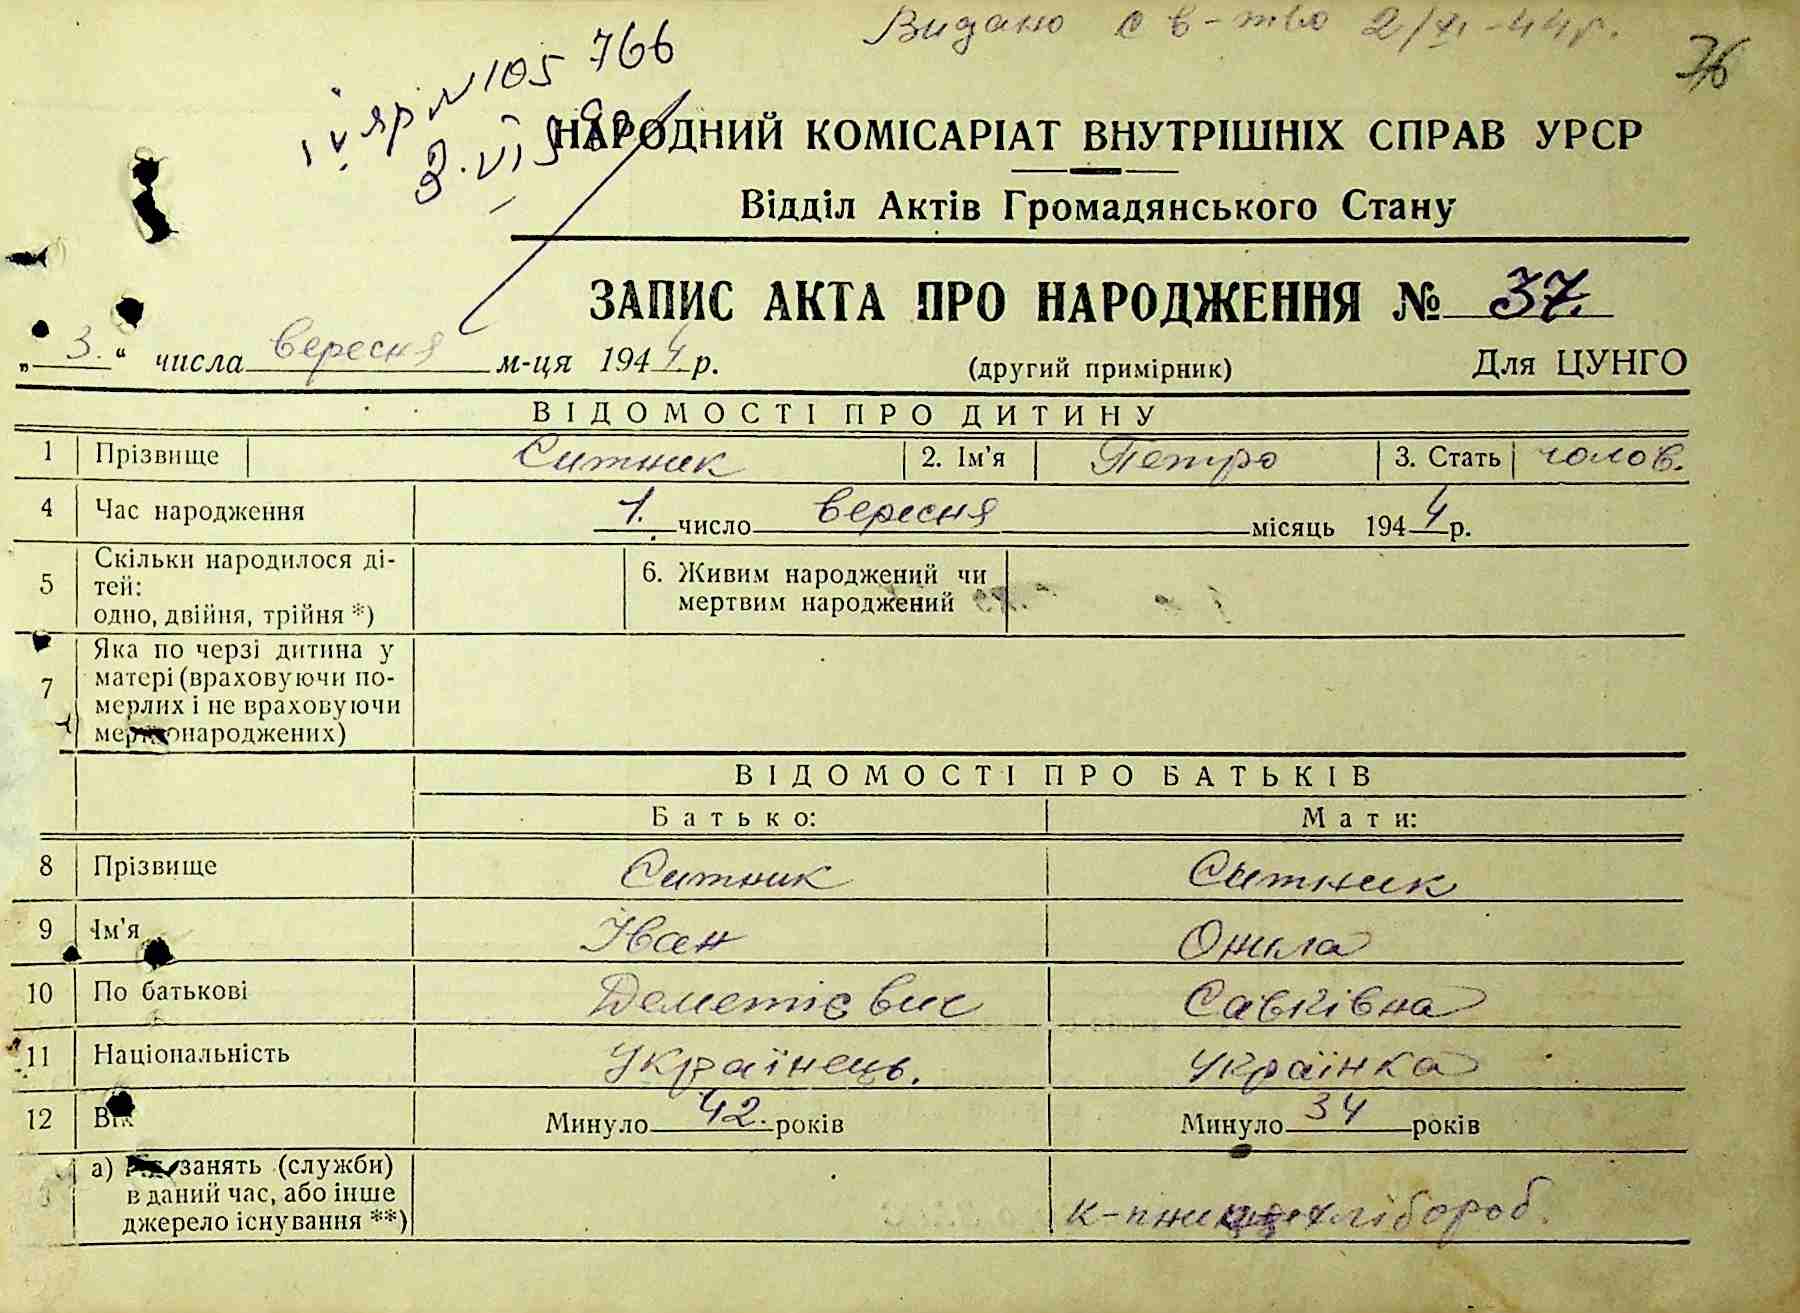 Видано св-тво 2/XI-44р.
76
IV яр № 105 766
3.VI
НАРОДНИЙ КОМІСАРІАТ ВНУТРІШНІХ СПРАВ УРСР
Відділ Актів Громадянського Стану
ЗАПИС АКТА ПРО НАРОДЖЕННЯ № 37.
„ 3. “ числа вересня м-ця 1944 р. (другий примірник) Для ЦУНГО
ВІДОМОСТІ ПРО ДИТИНУ
1 Прізвище Ситник 2. Ім'я Петро 3. Стать чолов.
4 Час народження 1. число вересня місяць 1944 р.
5 Скільки народилося ді-
тей:
одно, двійня, трійня *)
6. Живим народжений чи
мертвим народжений
7 Яка по черзі дитина у
матері (враховуючи по-
мерлих і не враховуючи
мертвонароджених)
ВІДОМОСТІ ПРО БАТЬКІВ
Батько: Мати:
8 Прізвище Ситник Ситник
9 Ім'я Іван
10 По батькові Деметієвич Савківна
11 Національність Українець. Українка
12 Вік Минуло 42. років Минуло 34 років
а) Рід занять (служби)
в даний час, або інше
джерело існування **)
хлібороб.